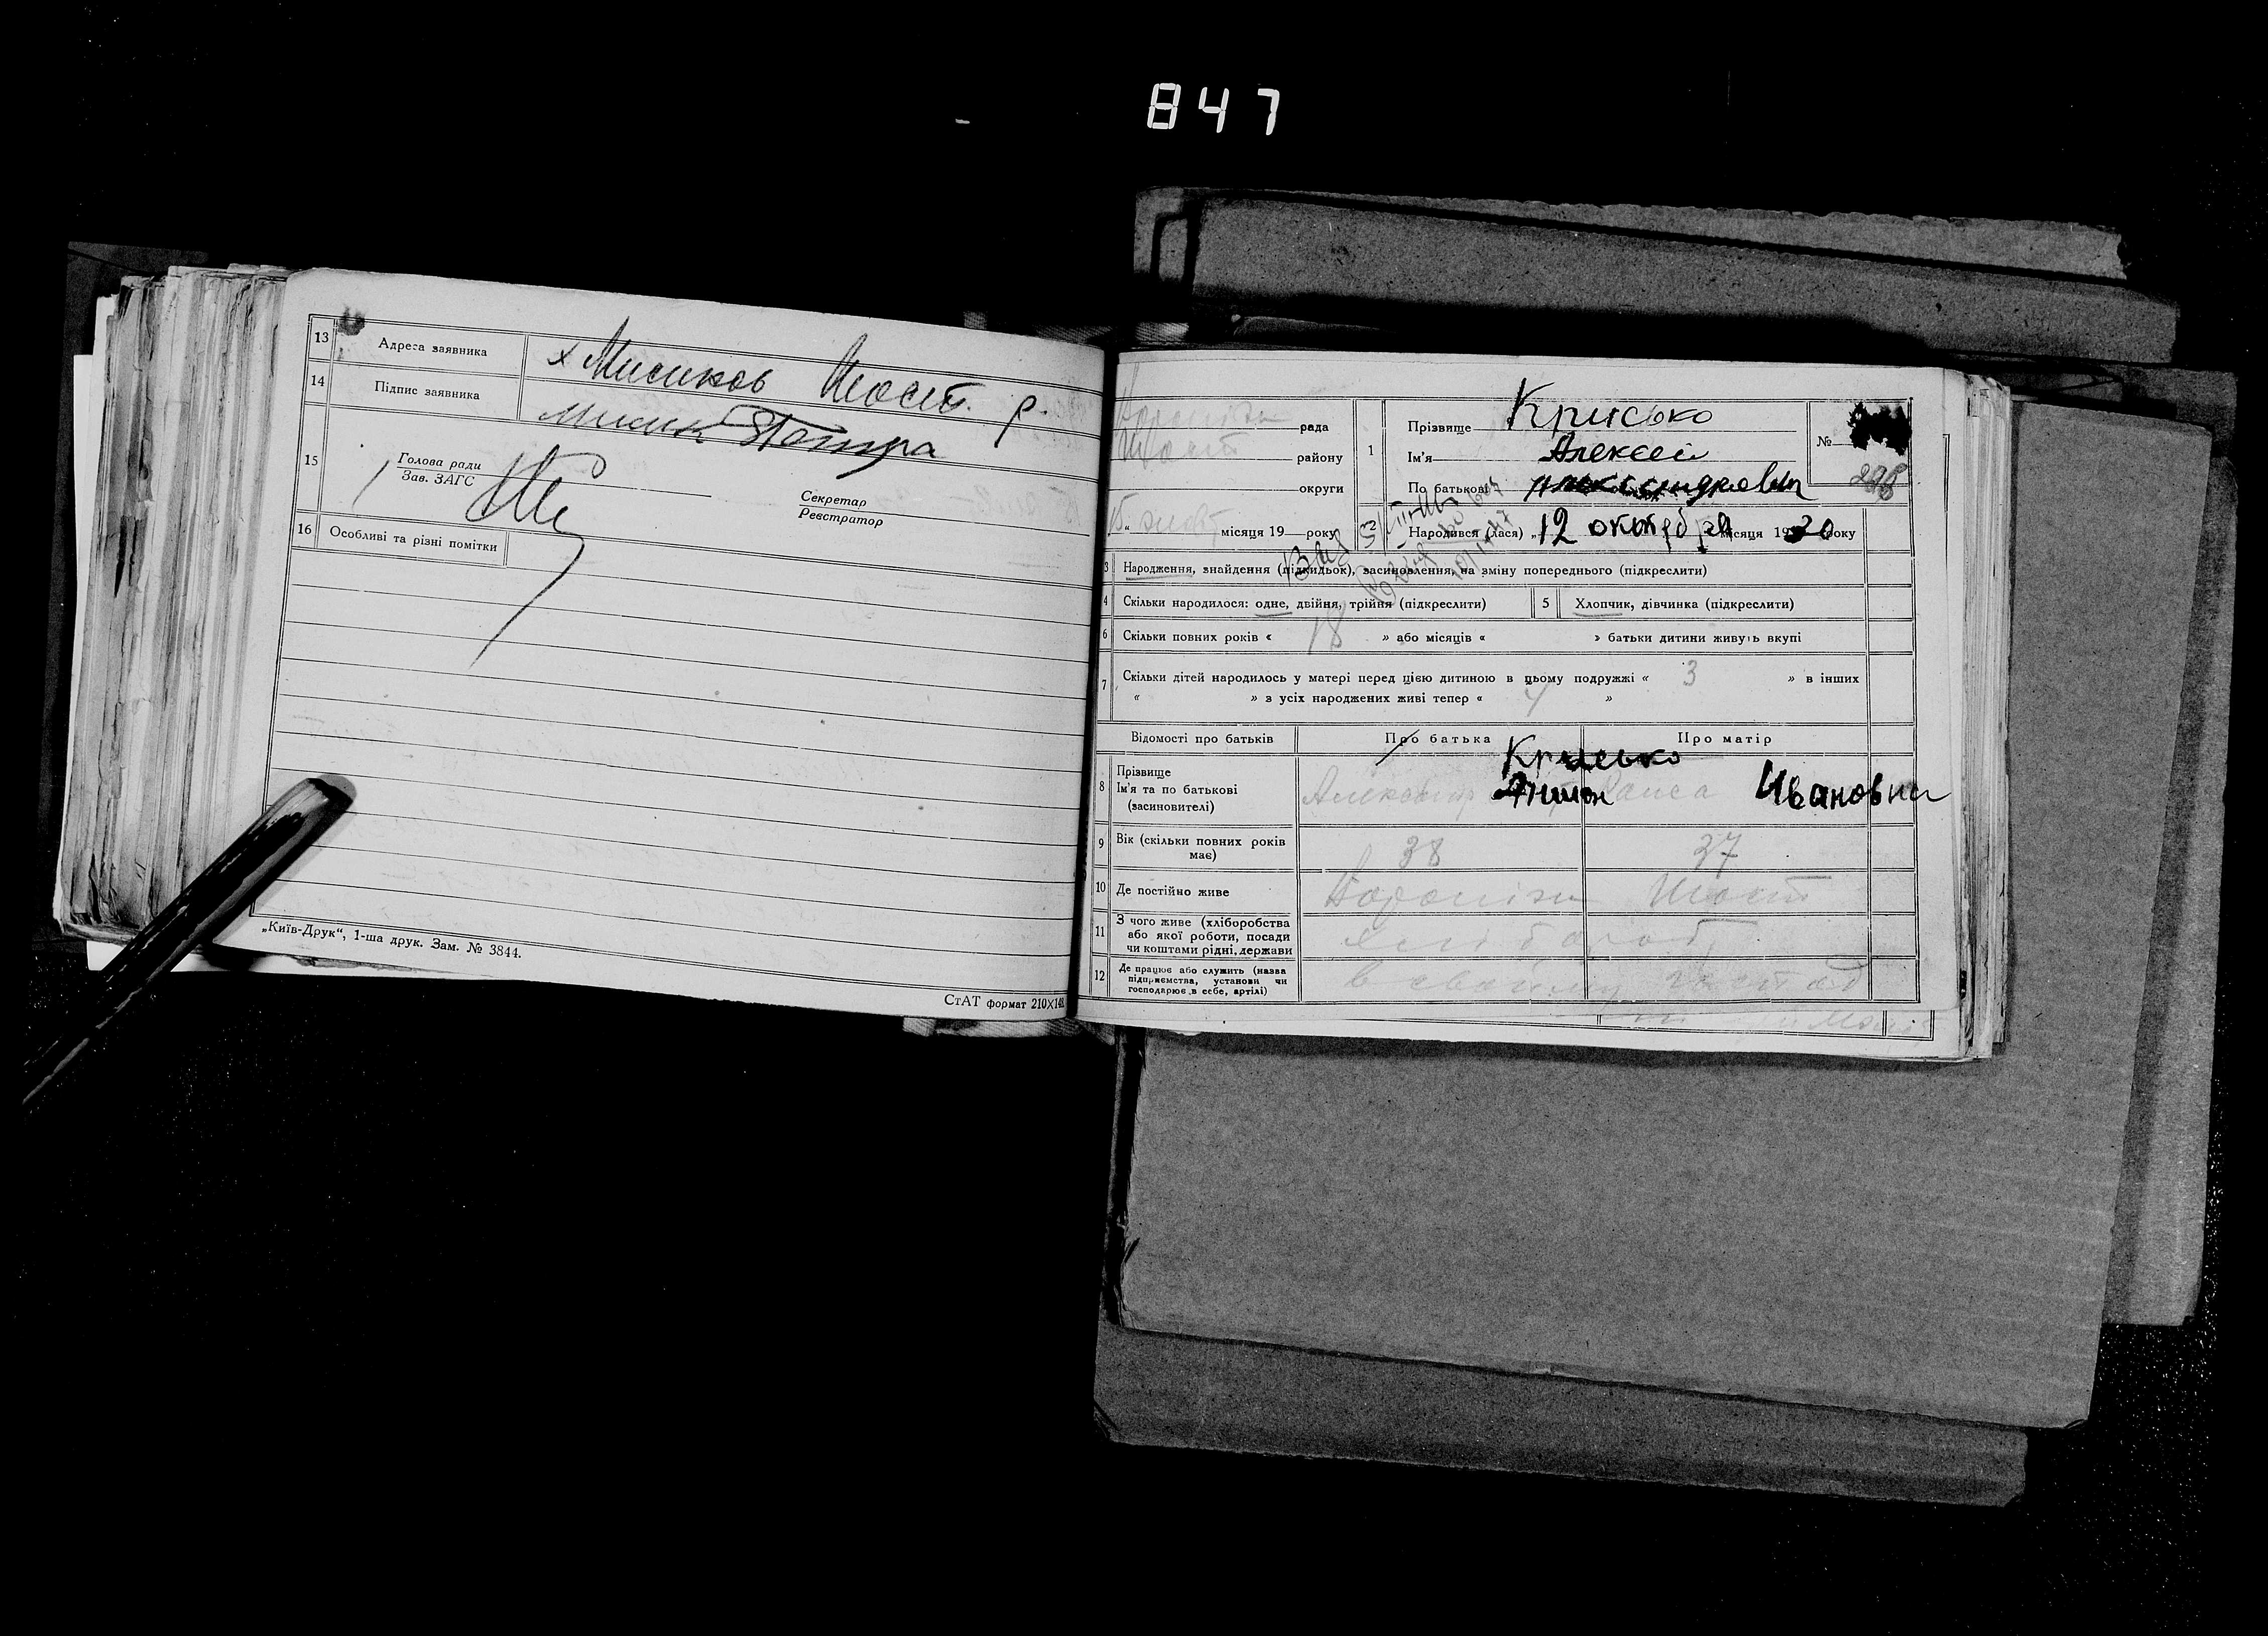 847
13 Адреса заявника х Мисиков Шост. р.
14 Підпис заявника Мисик
15 Голова ради
Зав. ЗАГС
Секретар
Реєстратор
16 Особливі та різні помітки
„Київ-Друк“, 1-ша друк. Зам. № 3844.
СтАТ формат 210×148
рада
Шост району
округи
місяця 19 року
1 Прізвище Крисько
Ім'я Алексей
По батькові Александрович
№ 
2 Народився (лася) „12 октября місяця 1930 року
3 Народження, знайдення (підкидьок), засиновлення, на зміну попереднього (підкреслити)
4 Скільки народилося: одне, двійня, трійня (підкреслити) 5 Хлопчик, дівчинка (підкреслити)
6 Скільки повних років « 18 » або місяців « » батьки дитини живуть вкупі
7 Скільки дітей народилось у матері перед цією дитиною в цьому подружжі « 3 » в інших
« » з усіх народжених живі тепер « 4 »
Відомості про батьків Про батька Про матір
8 Прізвище
Ім'я та по батькові
(засиновителі)
Крисько
Александр Раиса Ивановна
9 Вік (скільки повних років
має)
38 37
10 Де постійно живе Вороніж Шост
11 З чого живе (хліборобства
або якої роботи, посади
чи коштами рідні, держави
хлібороб
12 Де працює або служить (назва
підприємства, установи чи
господарює в себе, артілі)
в своїм господ